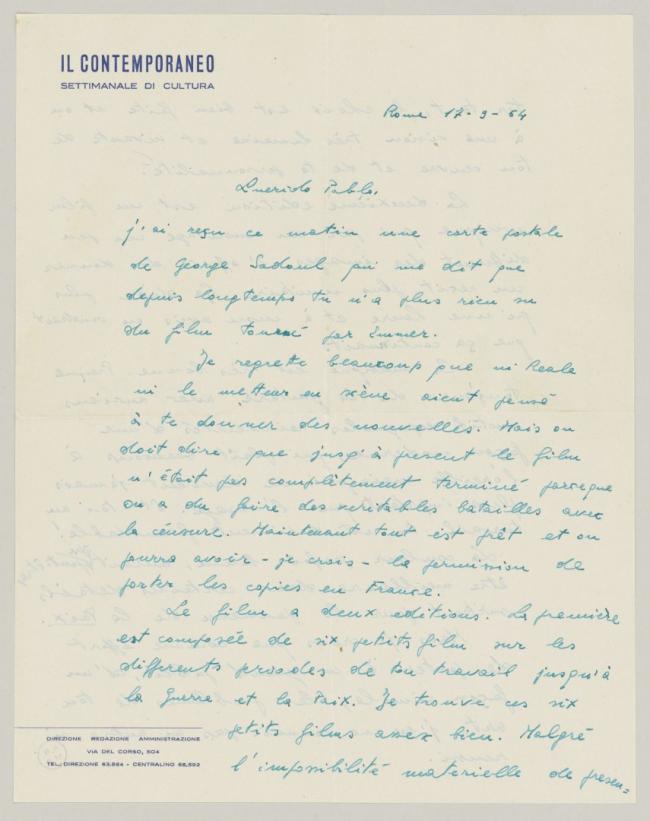 IL CONTEMPORANEO
SETTIMANALE DI CULTURA
Rome 17-9-54
Querido Pablo,
j'ai reçu ce matin une carte postale
de George Sadoul qui me dit que
depuis longtemps tu n'a plus rien su
du film tourné par Emmer.
Je regrette beaucoup que ni Reale
ni le metteur en scène aient pensé
à te donner des nouvelles. Mais on
doit dire que jusq'à présent le film
n'était pas complètement terminé parceque
on a du faire des veritables batailles avec
la cénsure. Maintenant tout est prêt et on
pourra avoir - je crois - la permission de
porter les copies en France.
Le film a deux editions. La première
est composée de six petits film sur les
differents periodes de ton travail jusqu'à
la Guerre et la Paix. Je trouve ces six
petits films assez bien. Malgré
l'impossibilité materielle de presen=
DIREZIONE REDAZIONE AMMINISTRAZIONE
VIA DEL CORSO, 504
TEL. DIREZIONE 63.864 - CENTRALINO 68.592